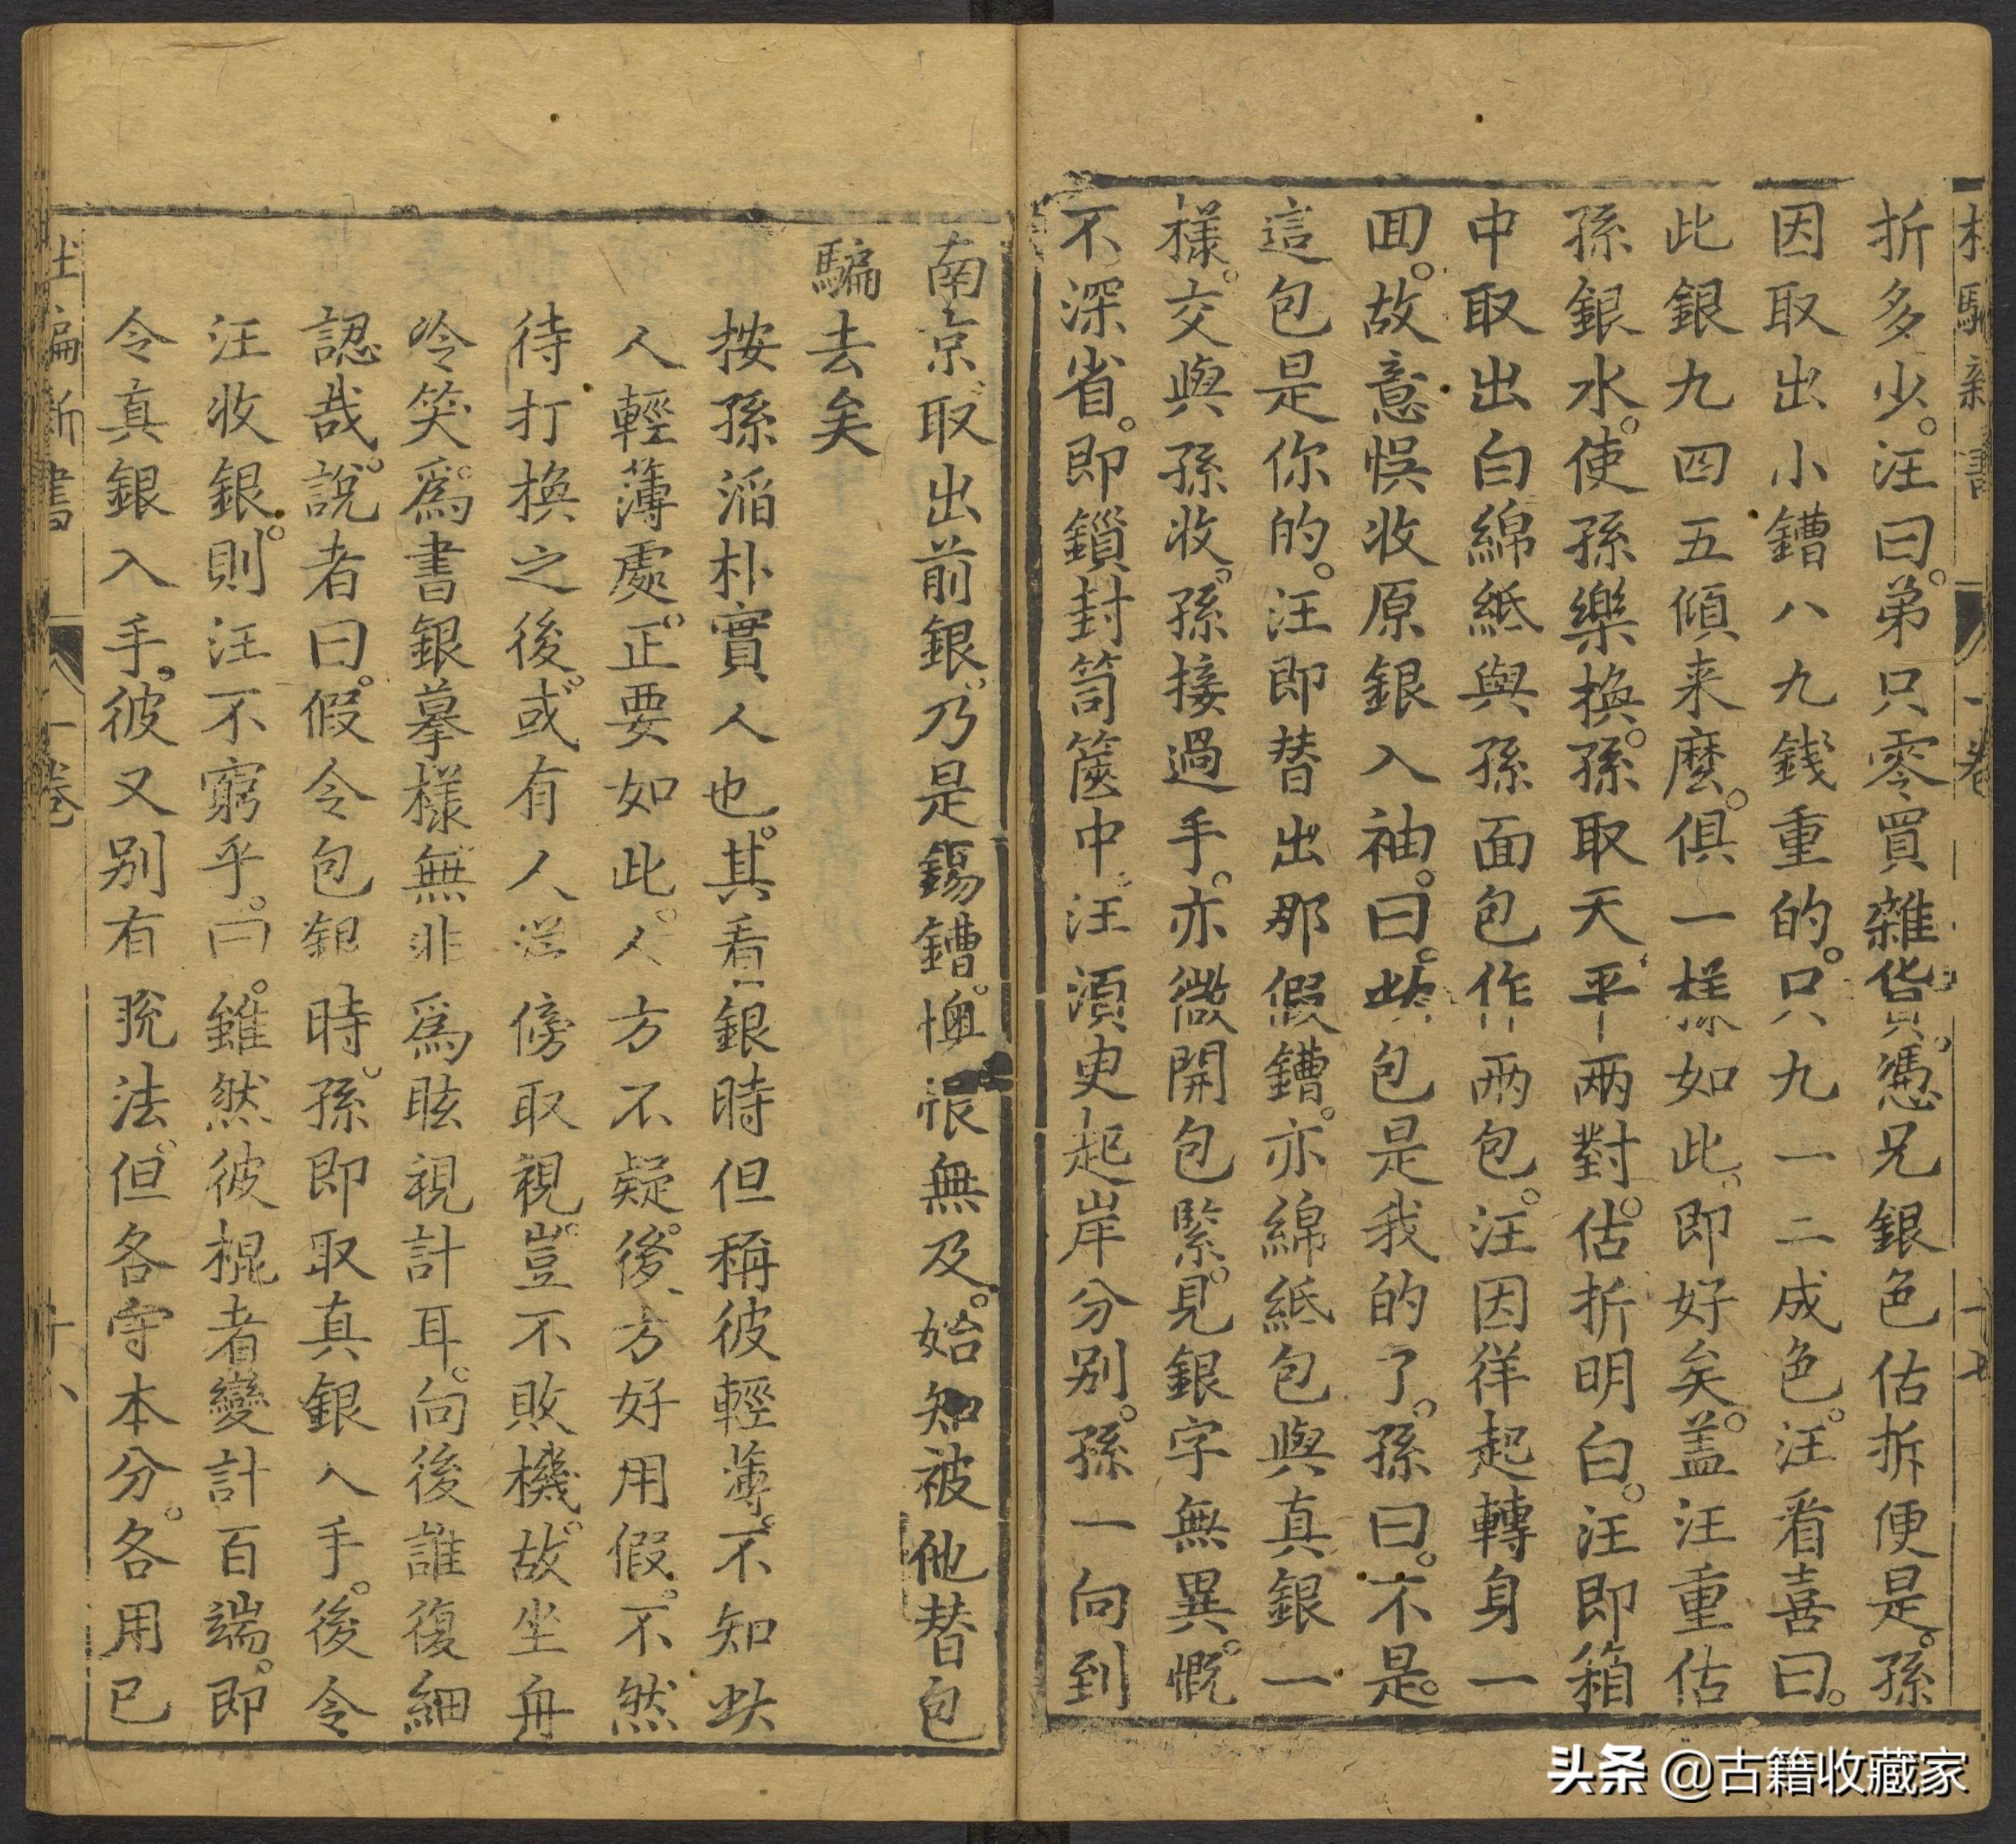 折多少。汪曰。弟只零買雜貨。憑兄銀色估拆便是。孫
因取出小鏪八九錢重的。只九一二成色。汪看喜曰。
此銀九四五傾来麽。俱一樣如此。即好矣。盖汪重估
孫銀水。使孫樂換。孫取天平兩對。估折明白。汪即箱
中取出白綿紙與孫面包作兩包。汪因徉起轉身一
囬。故意悞收原銀入袖。曰。此包是我的了。孫曰。不是。
這包是你的。汪即替出那假鏪。亦綿紙包與真銀一
樣。交與孫收。孫接過手。亦微開包緊。見銀字無異。慨
不深省。即鎖封笥篋中。汪須臾起岸分别。孫一向到
南京。取出前銀。乃是錫鏪。懊恨無及。始知被他替包
騙去矣
按孫滔朴實人也。其看銀時但稱彼輕薄。不知此
人輕薄處。正要如此。人方不疑。後方好用假。不然
待打換之後。或有人從傍取視。豈不敗機。故坐舟
冷笑。爲書銀摹樣無非爲眩視計耳。向後誰復細
認哉。說者曰。假令包銀時。孫即取真銀入手。後令
汪收銀。則汪不窮乎。曰。雖然彼棍者變計百端。即
令真銀入手。彼又别有脫法。但各守本分。各用已
杜騙新書 一卷 十七
杜騙新書 一卷 十八
头条 @古籍收藏家